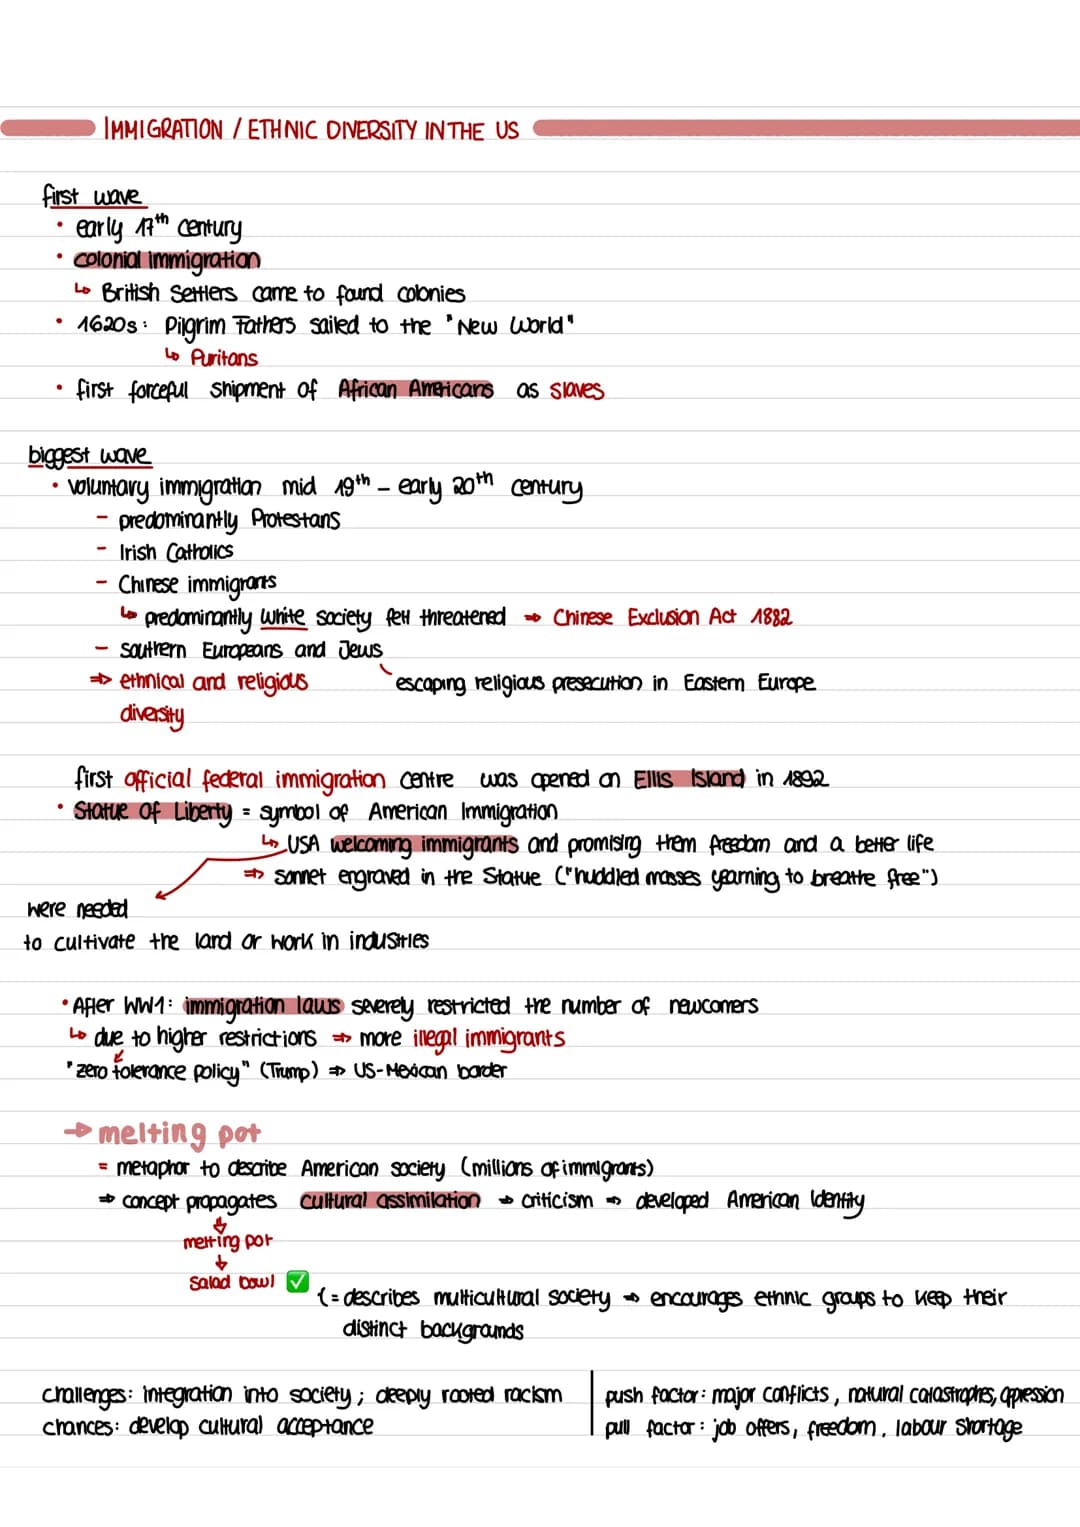 IMMIGRATION / ETHNIC DIVERSITY IN THE US
first wave
• early 17th century
• colonial immigration
↳ British Settlers came to found colonies
• 1620s: Pilgrim Fathers sailed to the "New World"
↳ Puritans
• first forceful shipment of African Americans as slaves
biggest wave
• voluntary immigration mid 19th – early 20th century
- predominantly Protestans
- Irish Catholics
- Chinese immigrants
↳ predominantly white society felt threatened ⇒ Chinese Exclusion Act 1882
- Southern Europeans and Jews
⇒ ethnical and religious escaping religious presecution in Eastern Europe
diversity
first official federal immigration centre was opened on Ellis Island in 1892
• Statue of Liberty = symbol of American Immigration
↳ USA welcoming immigrants and promising them freedom and a better life
⇒ sonnet engraved in the Statue ("huddled masses yearning to breathe free")
were needed
to cultivate the land or work in industries
• After WW1: immigration laws severely restricted the number of newcomers
↳ due to higher restrictions ⇒ more illegal immigrants
"zero tolerance policy" (Trump) ⇒ US-Mexican border
→ melting pot
= metaphor to describe American society (millions of immigrants)
⇒ concept propagates cultural assimilation → criticism ⇒ developed American Identity
↓
melting pot
↓
Salad bowl ✅
(= describes multicultural society → encourages ethnic groups to keep their
distinct backgrounds
challenges: integration into society; deeply rooted racism
chances: develop cultural acceptance
push factor: major conflicts, natural catastrophes, oppression
pull factor: job offers, freedom, labour shortage